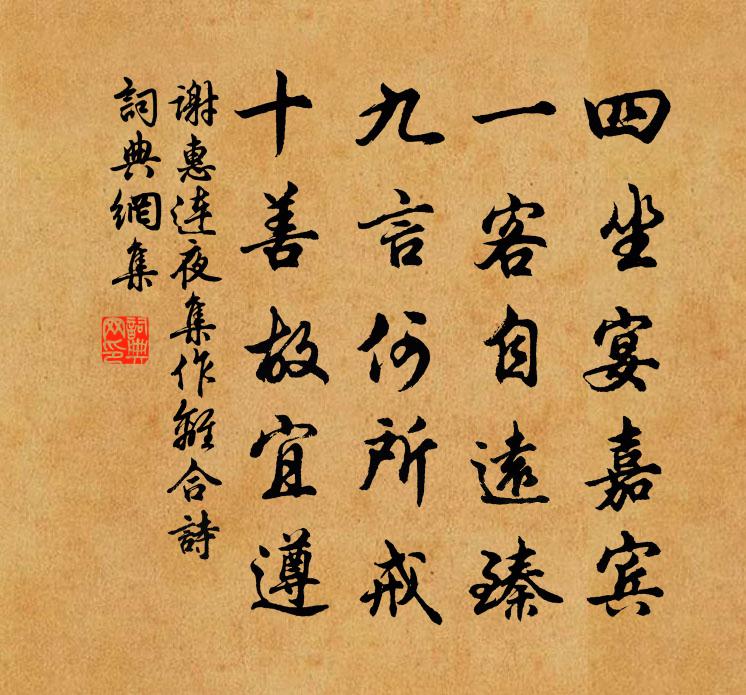 四坐宴嘉宾
一客自遠臻
九言何所戒
十善故宜遵
谢惠連夜集作離合詩
詞典網集
詞典网印